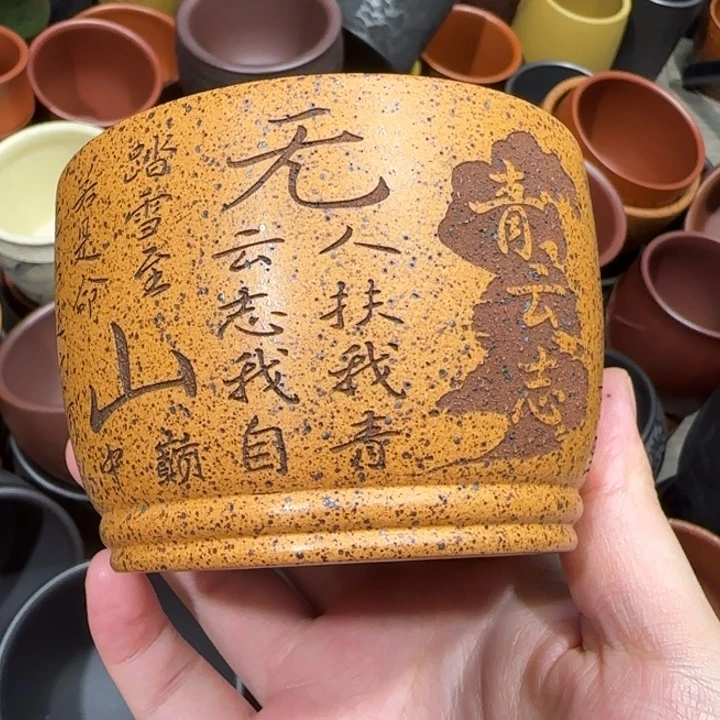 青云志
无人扶我青
云志我自
踏雪至山巅
若是命中